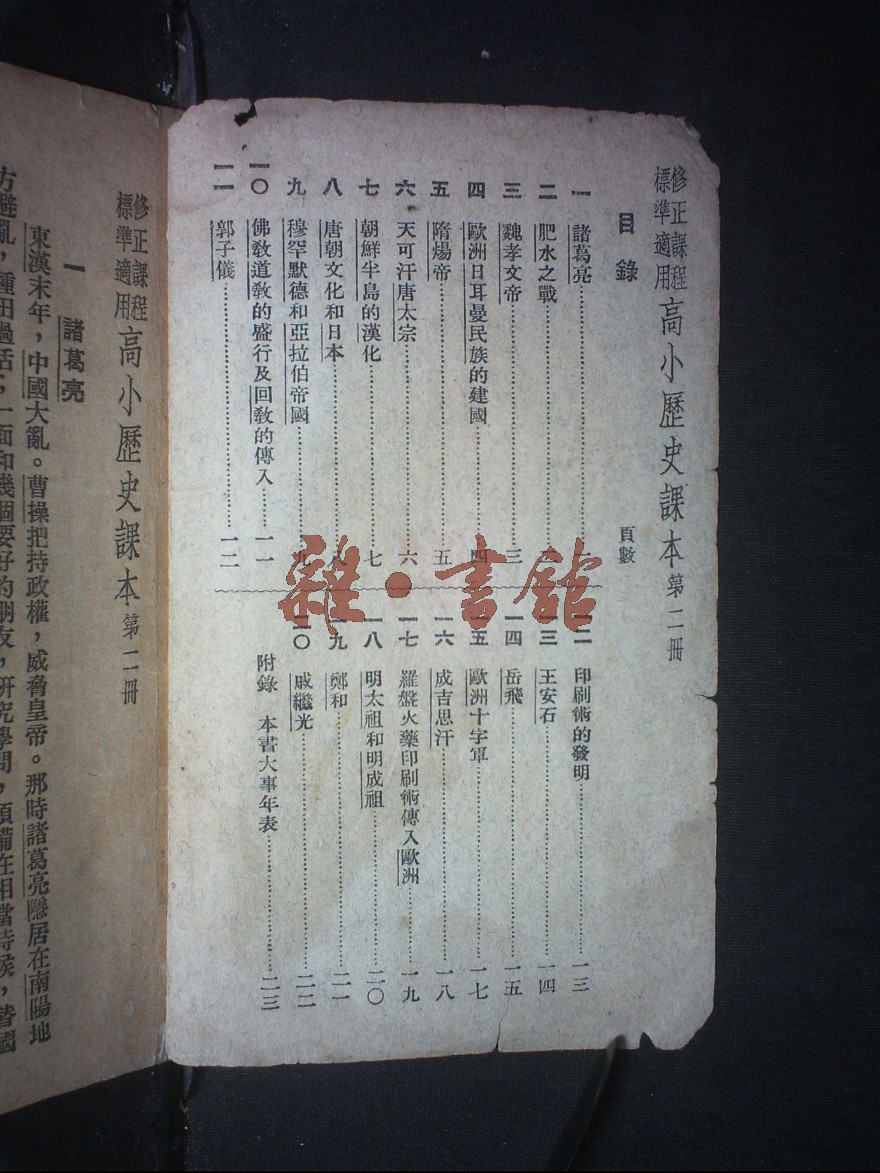 修正課程標準適用 高小歷史課本 第二冊
目錄
頁數
一 諸葛亮……一
二 肥水之戰……
三 魏孝文帝……三
四 歐洲日耳曼民族的建國……四
五 隋煬帝……五
六 天可汗唐太宗……六
七 朝鮮半島的漢化……七
八 唐朝文化和日本……八
九 穆罕默德和亞拉伯帝國……九
一〇 佛教道教的盛行及回教的傳入……一一
一一 郭子儀……一二
一二 印刷術的發明……一三
一三 王安石……一四
一四 岳飛……一五
一五 歐洲十字軍……一七
一六 成吉思汗……一八
一七 羅盤火藥印刷術傳入歐洲……一九
一八 明太祖和明成祖……二〇
一九 鄭和……二一
二〇 戚繼光……二二
附錄 本書大事年表……二三
雜·書館
修正課程標準適用 高小歷史課本 第二冊
一 諸葛亮
東漢末年，中國大亂。曹操把持政權，威脅皇帝。那時諸葛亮隱居在南陽地
方避亂，種田過活；一面和幾個要好的朋友，研究學問，預備在相當時候，替國